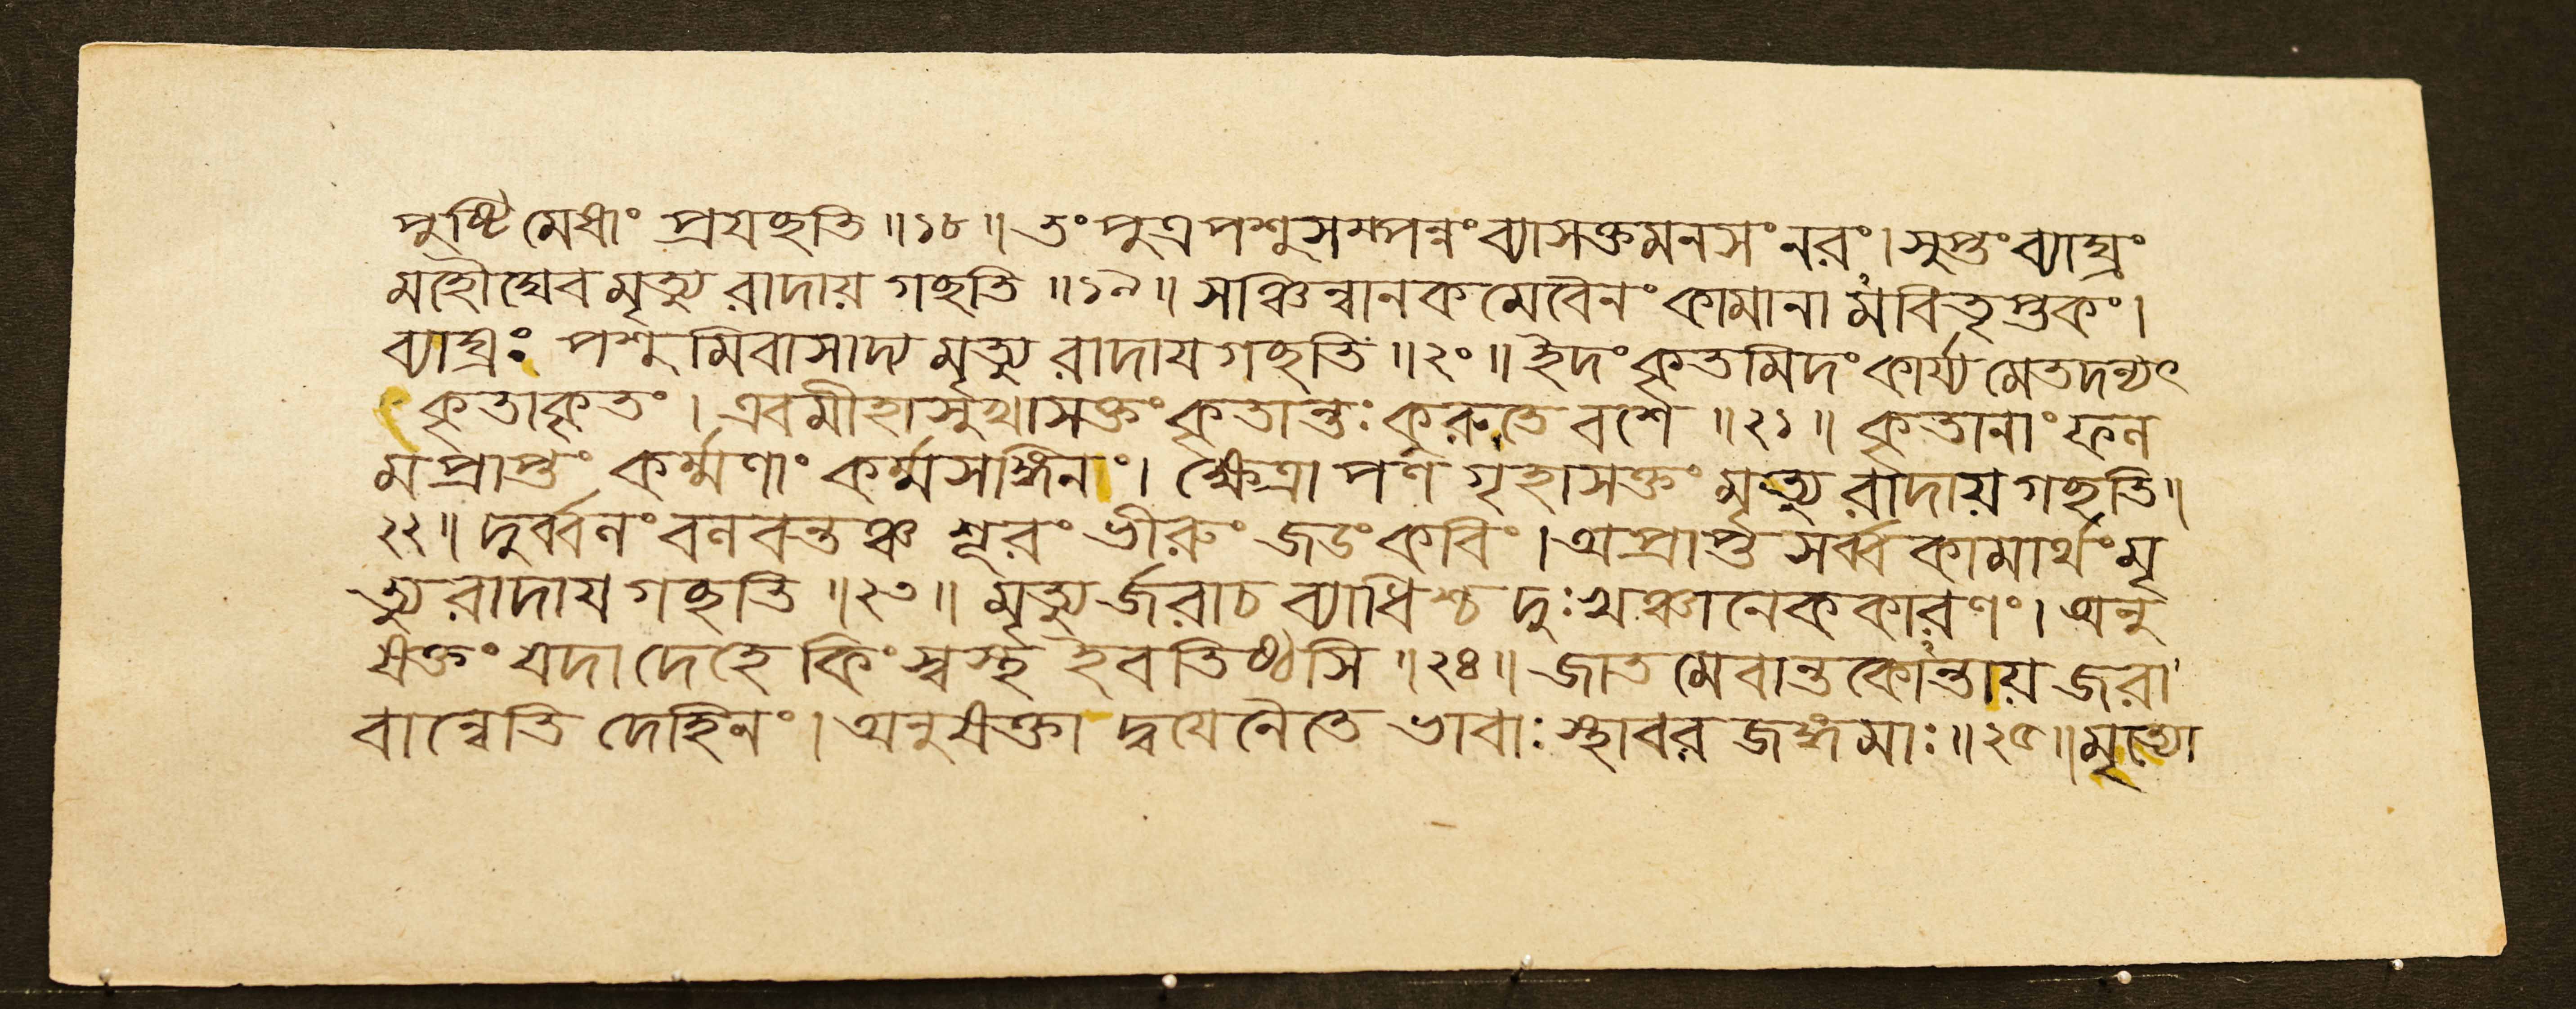 পুষ্টিমেষাং প্রযছতি ॥১৮॥ তং পুত্রপশুসম্পন্নং ব্যাসক্তমনসং নরং। সুপ্তং ব্যাঘ্রং
মহৌঘেব মৃত্যুরাদায় গছতি ॥১৯॥ সঞ্চিন্বানকমেবৈনং কামানামবিতৃপ্তকং।
ব্যাঘ্রঃ পশুমিবাসাদ্য মৃত্যুরাদায গছতি ॥২০॥ ইদং কৃতমিদং কার্য্যমেতদন্যৎ
কৃতাকৃতং। এবমীহাসুখাসক্তং কৃতান্তঃ কুরুতে বশে ॥২১॥ কৃতানাং ফল
মপ্রাপ্তং কর্ম্মণাং কর্ম্মসঙ্গিনাং। ক্ষেত্রাপণগৃহাসক্তং মৃত্যুরাদায় গছতি॥
২২॥ দুর্ব্বলং বলবন্তঞ্চ শূরং ভীরুং জডং কবিং। অপ্রাপ্তসর্ব্বকামার্থং মৃ
ত্যুরাদায গছতি ॥২৩॥ মৃত্যুর্জরাচ ব্যাধিশ্চ দুঃখঞ্চানেককারণং। অনু
ষক্তং যদা দেহে কিং স্বস্থ ইব তিষ্ঠসি ॥২৪॥ জাতমেবান্তকোন্তায় জরা
বান্বেতি দেহিনং। অনুষক্তা দ্বযেনৈতে ভাবাঃ স্থাবরজঙ্গমাঃ॥২৫॥ মৃত্যো